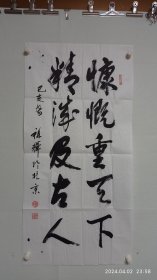 慷慨重天下
精诚及古人
己亥冬
于北京
2024.04.02 23:58